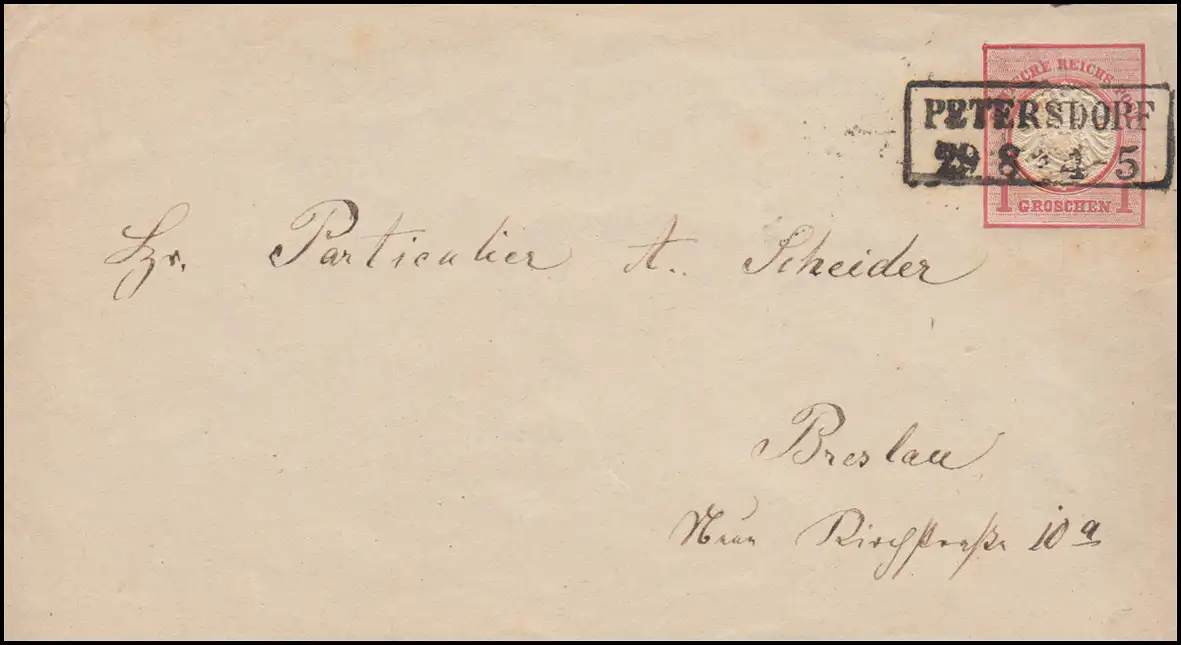 DEUTSCHE REICHS-POST
PETERSDORF
29 8 4-5
1 GROSCHEN 1
Hr. Particulier A. Scheider
Breslau
Neue Kirchstraße 10 a